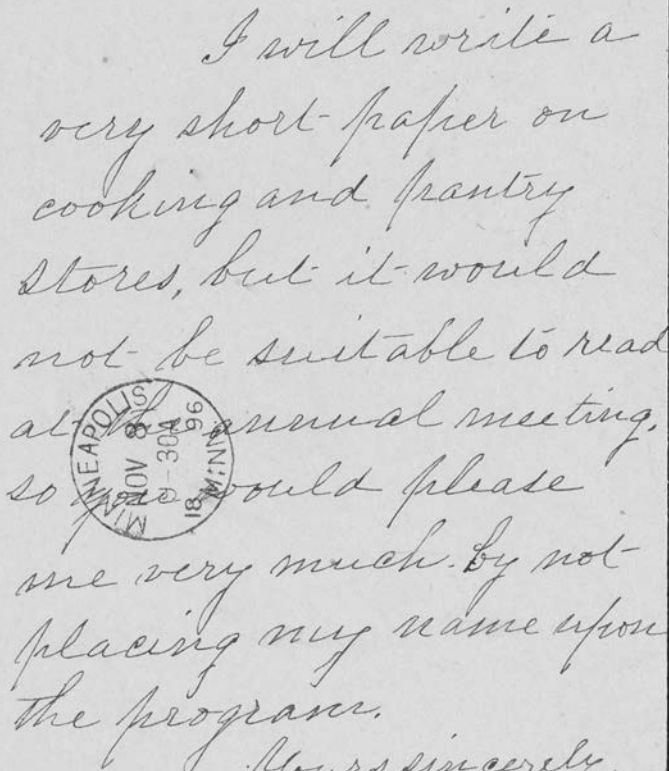 I will write a
very short paper on
cooking and pantry
stores, but it would
not be suitable to read
at the annual meeting.
so you would please
me very much by not
placing my name upon
the program.
Yours sincerely,
MINNEAPOLIS MINN.
NOV 8
9-30A
1896